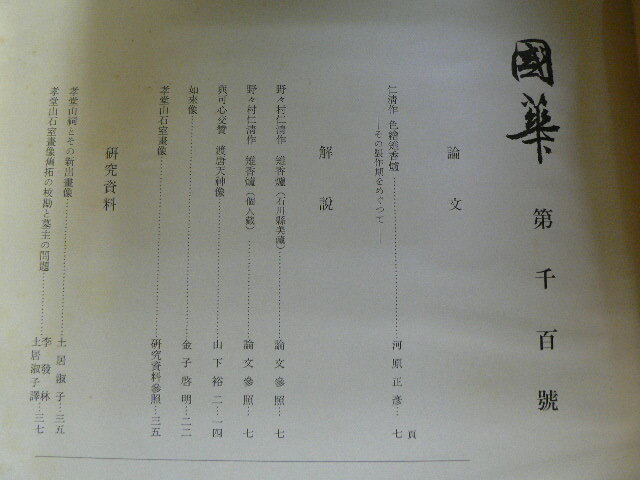 國華
第千百號
論文
頁
仁淸作 色繪雉香爐……河原正彦…七
―その製作期をめぐつて―
解說
野々村仁淸作 雉香爐（石川縣美藏）……論文參照…七
野々村仁淸作 雉香爐（個人藏）……論文參照…七
與可心交贊 渡唐天神像……山下裕二…一四
如來像……金子啓明…二二
孝堂山石室畫像……硏究資料參照…三五
硏究資料
孝堂山祠とその新出畫像……土居淑子…三五
孝堂山石室畫像舊拓の校勘と墓主の問題……李發林
土居淑子譯…三七